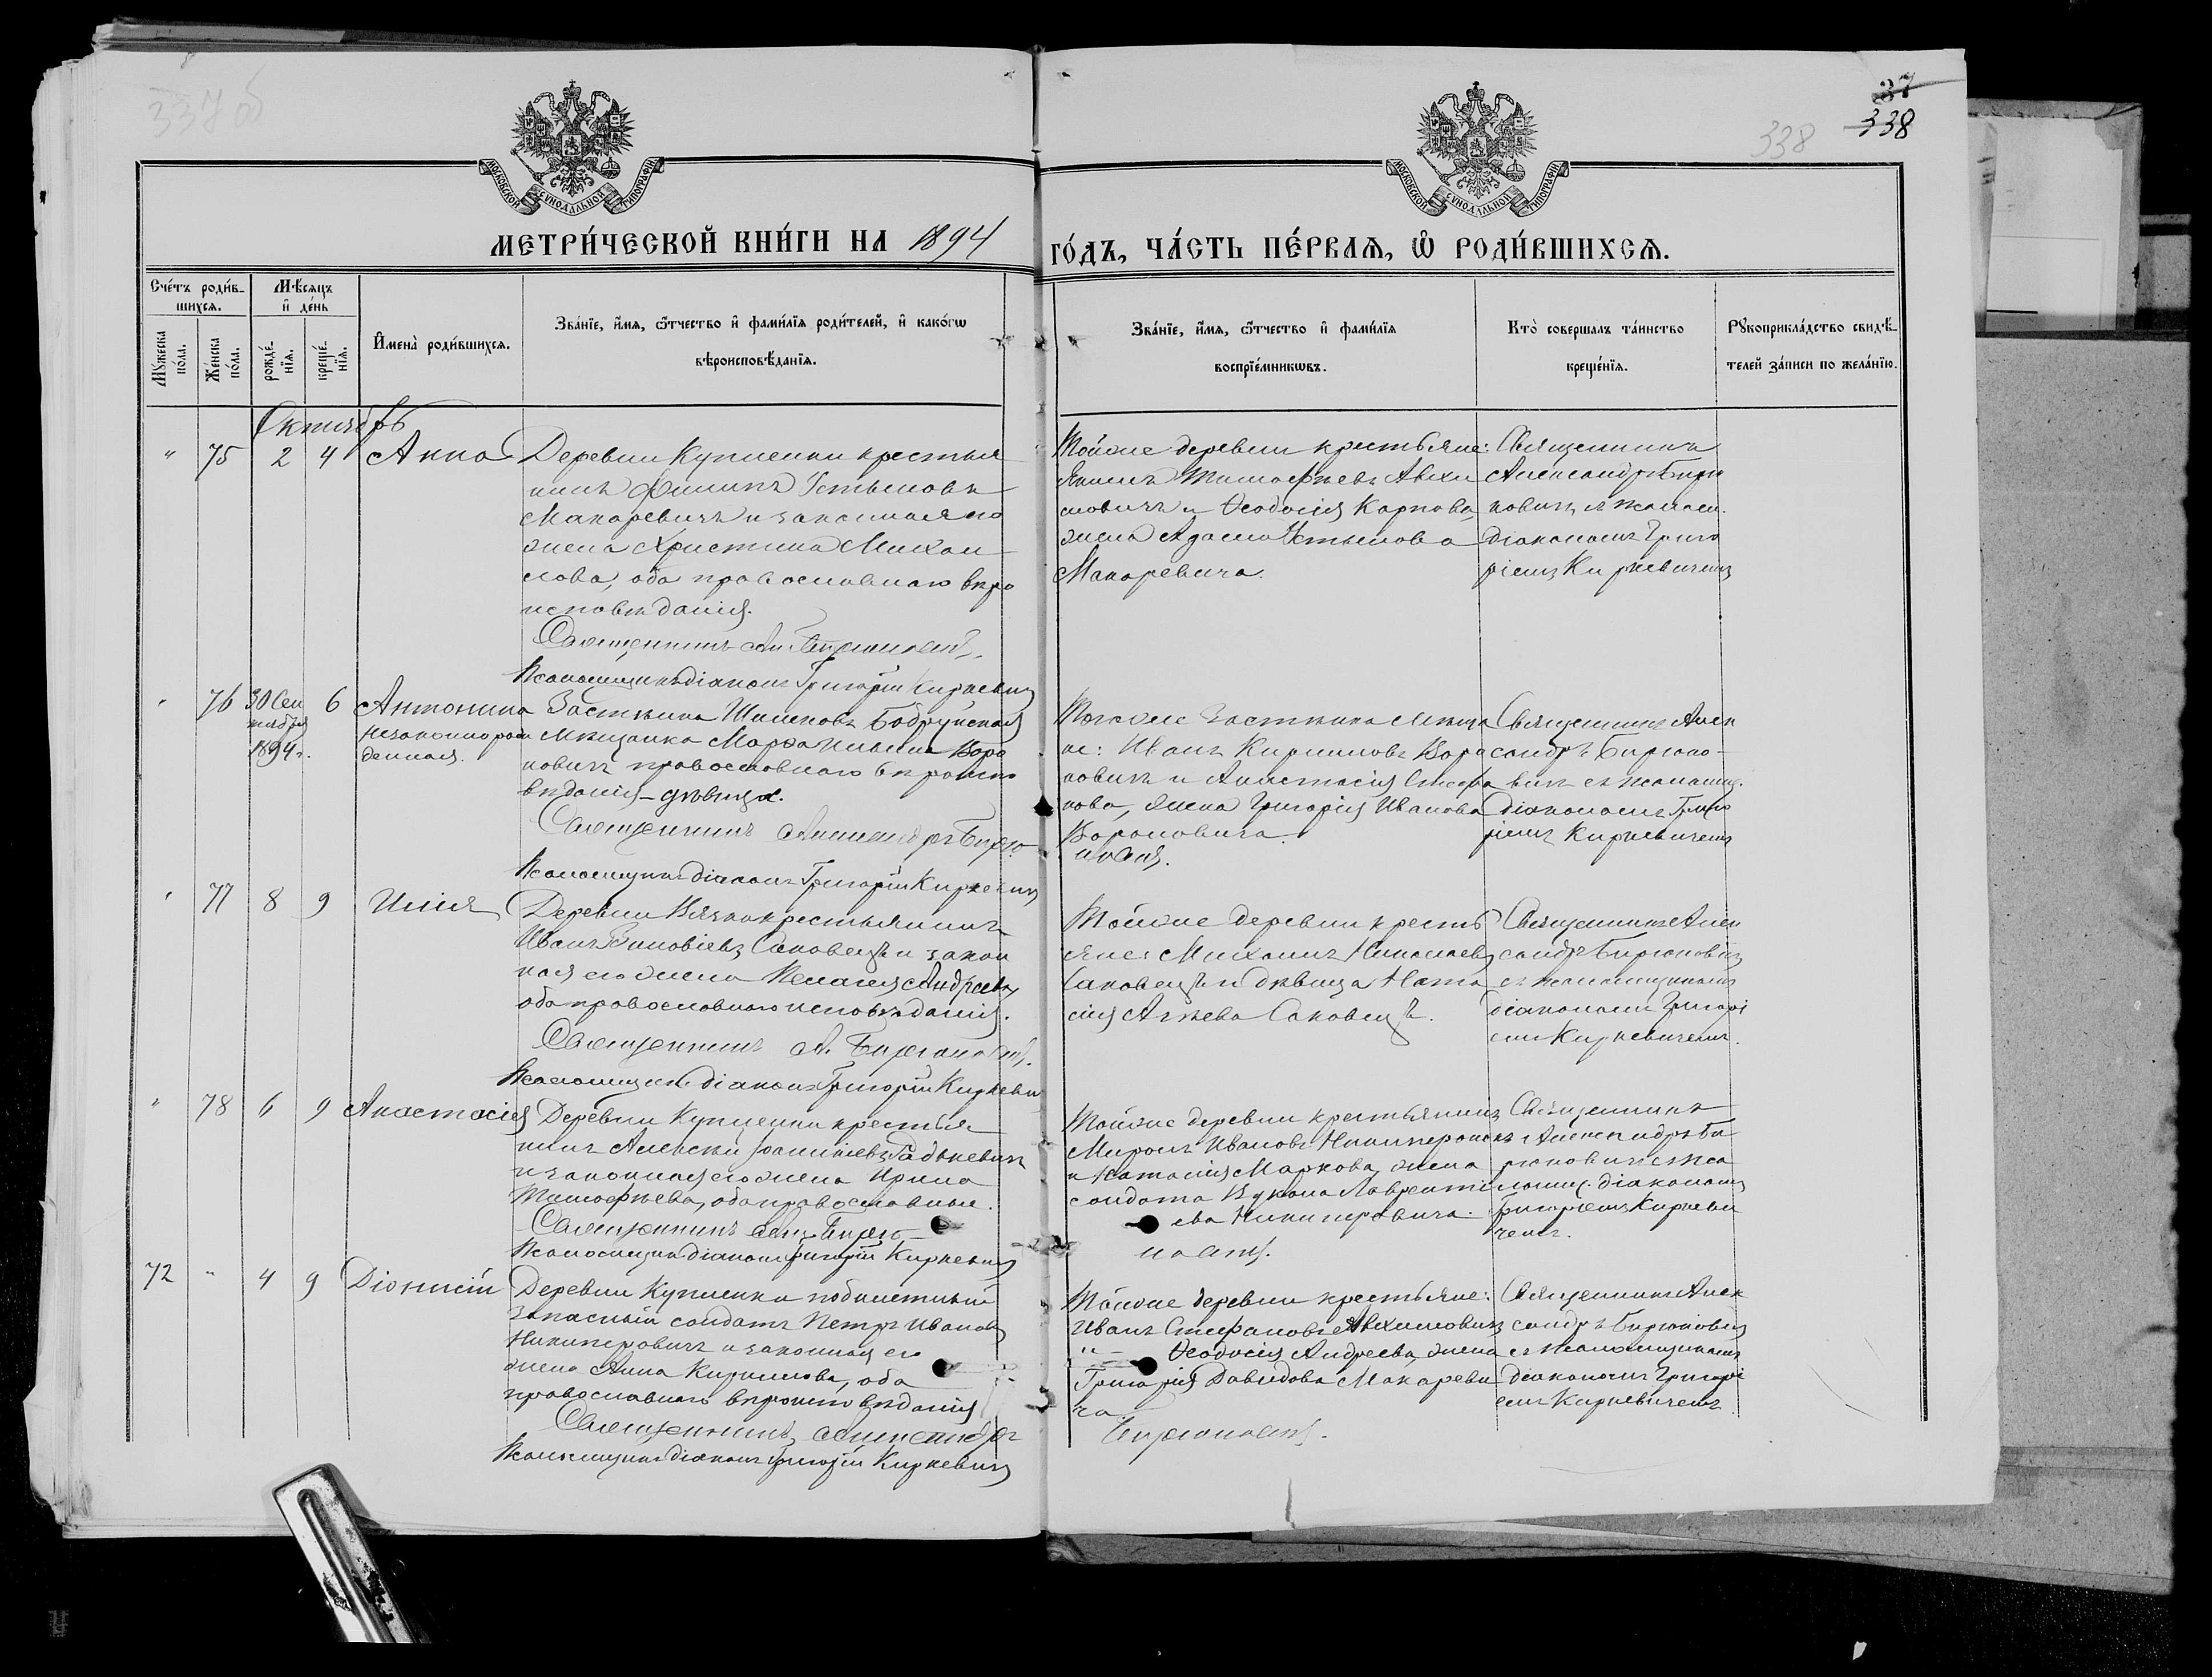 337 об
37
338
338
МОСКОВСКОЙ СѴНОДАЛЬНОЙ ТИПОГРАФІИ
МОСКОВСКОЙ СѴНОДАЛЬНОЙ ТИПОГРАФІИ
МЕТРИ́ЧЕСКОЙ КНИ́ГИ НА 1894 ГО́ДЪ, ЧА́СТЬ ПЕ́РВАѦ, Ѽ РОДИ́ВШИХСѦ.
Сче́тъ роди́в-
шихсѧ.
Мѣ́сѧцъ
и҆ де́нь
Мꙋ́жеска по́ла.
Же́нска по́ла.
рожде́-нїѧ.
креще́-нїѧ.
И҆мена̀ роди́вшихсѧ.
Зва́нїе, и҆́мѧ, ѻ҆́тчество и҆ фами́лїѧ роди́телей, и҆ како́гѡ
вѣроисповѣ́данїѧ.
Зва́нїе, и҆́мѧ, ѻ҆́тчество и҆ фами́лїѧ
воспрїе́мникѡвъ.
Кто̀ совершалъ та́инство
креще́нїѧ.
Рꙋкоприкла́дство свидѣ́-
телей за́писи по жела́нїю.
Октябрь
" 75 2 4 Анна
Деревни Купленки крестья
нинъ Филипъ Устиновъ
Макаревичъ и законная его
жена Христина Михаи
лова, оба православнаго вѣро
исповѣданія.
Священникъ Ал. Бирюковичъ.
Псаломщикъ діаконъ Григорій Киркевичъ
Тойже деревни крестьяне:
Якимъ Тимофеевъ Авхи
мовичъ и Ѳеодосія Карпова,
жена Адама Устинова
Макаревича.
Священникъ
Александръ Бирю
ковичъ съ псалом.
діакономъ Григо
ріемъ Киркевичемъ
" 76 30 Сен
тября
1894 г.
6 Антонина
незаконнорож
денная.
Застѣнка Бобруйская
мѣщанка Марѳа Ильина Воро
новичъ православнаго вѣроиспо
вѣданія – дѣвица.
Священникъ Александръ Бирю-
ковичъ.
Псаломщикъ діаконъ Григорій Киркевичъ
Тогоже застѣнка мѣща
не: Иванъ Кириловъ Воро
новичъ и Анастасія Стефа
нова, жена Григорія Иванова
Вороновича.
Священникъ Алек
сандръ Бирюко-
вичъ съ псаломщ.
діакономъ Григо
ріемъ Киркевичемъ
" 77 8 9 Юлія
Деревни Вязка крестьянинъ
Иванъ Зиновіевъ Саковецъ и закон
ная его жена Пелагея Андреева,
оба православнаго исповѣданія.
Священникъ Ал. Бирюковичъ.
Псаломщикъ діаконъ Григорій Киркевичъ
Тойже деревни кресть
яне: Михаилъ Николаевъ
Саковецъ и дѣвица Ната
лія Саковецъ.
Священникъ Алек
сандръ Бирюковичъ
съ псаломщикомъ
діакономъ Григорі
емъ Киркевичемъ.
" 78 6 9 Анастасія
Деревни Купленки крестья
нинъ Алексѣй Радькевичъ
и законная его жена Ирина
Тимофѣева, оба православные.
Священникъ Алек. Бирю-
ковичъ.
Псаломщикъ діаконъ Григорій Киркевичъ
Тойже деревни крестьянинъ
Миронъ Ивановъ Никиперовичъ
и Наталія Маркова, жена
солдата Вукола Лаврентi
ева Никиперовича.
Священникъ
Александръ Би
рюковичъ съ пса
ломщ. діакономъ
Григоріемъ Киркеви
чемъ.
72 " 4 9 Діонисій
Деревни Купленки побилетный
запасный солдатъ Петръ Ивановъ
Никиперовичъ и законная его
жена Анна Кирилова, оба
православнаго вѣроисповѣданія
Священникъ Александръ
Бирюковичъ.
Псаломщикъ діаконъ Григорій Киркевичъ
Тойже деревни крестьяне:
Иванъ Стефановъ Авхимовичъ
и Ѳеодосія Андреева, жена
Григорія Давидова Макареви
ча.
Священникъ Алек
сандръ Бирюковичъ
съ псаломщикомъ
діакономъ Григорі
емъ Киркевичемъ